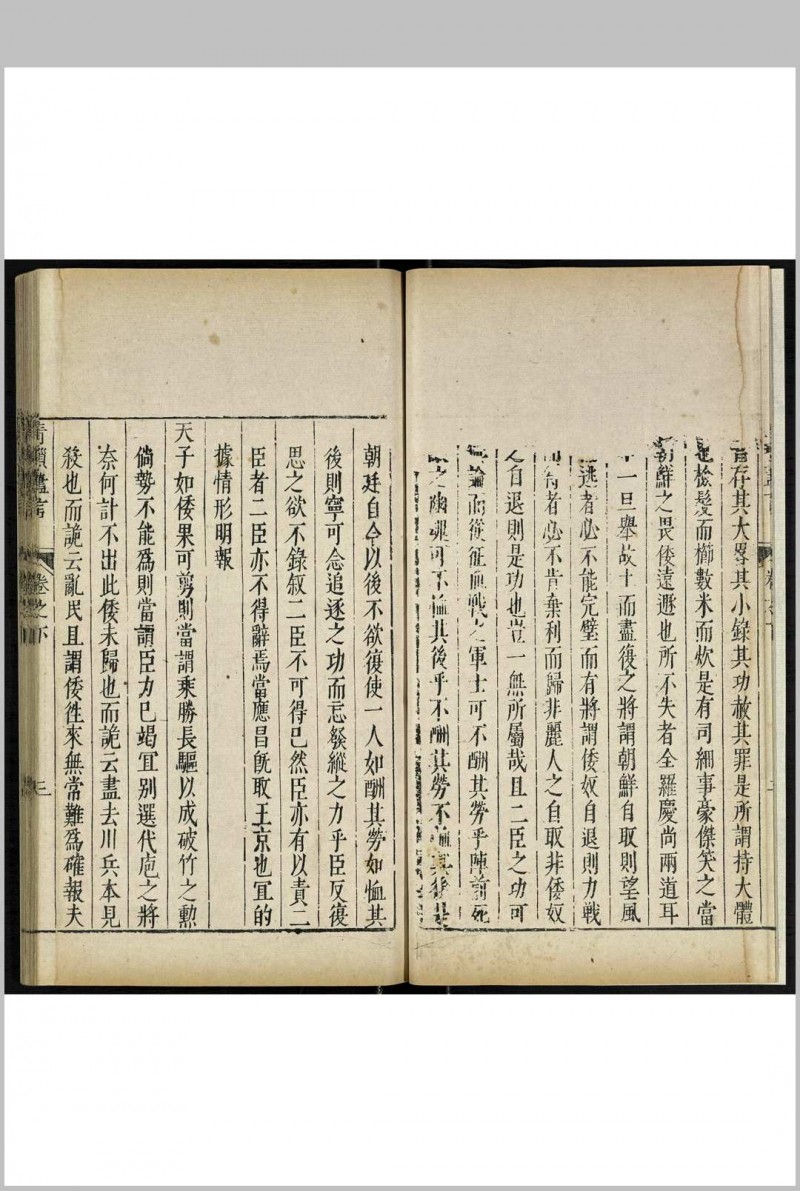 存其大畧其小錄其功赦其罪是所謂持大體
檢髮而櫛數米而炊是有司細事豪傑笑之當
朝鮮之畏倭遠遯也所不失者全羅慶尚兩道耳
一旦舉故土而盡復之將謂朝鮮自取則望風
逃者必不能完璧而有將謂倭奴自退則力戰
者必不肯棄利而歸非麗人之自取非倭奴
自退則是功也豈一無所屬哉且二臣之功可
論而從征血戰之軍士可不酬其勞乎陣前死
之幽魂可不恤其後乎不酬其勞不恤其後是
朝廷自今以後不欲復使一人如酬其勞如恤其
後則寧可念追逐之功而忘發縱之力乎臣反復
思之欲不錄叙二臣不可得已然臣亦有以責二
臣者二臣亦不得辭焉當應昌旣取王京也宜的
據情形明報
天子如倭果可剪則當謂乘勝長驅以成破竹之勲
倘勢不能爲則當謂臣力已竭宜别選代庖之將
奈何計不出此倭未歸也而詭云盡去川兵本見
殺也而詭云亂民且謂倭徃來無常難爲確報夫
青瑣藎言 卷之下 三